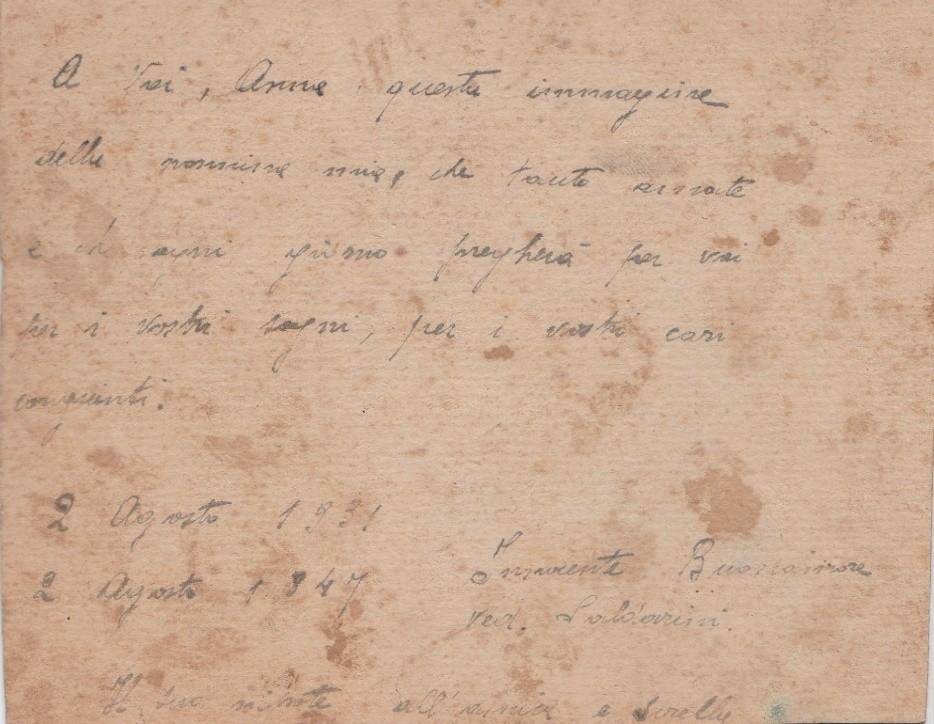 A Voi, Anna questa immagine
della nonnina mia, che tanto amate
e che ogni giorno pregherà per voi
per i vostri sogni, per i vostri cari
congiunti.
2 Agosto 1931
2 Agosto 1847
Innocente Buonamore
ved. Saldarini.
Il suo all'amica e sorella